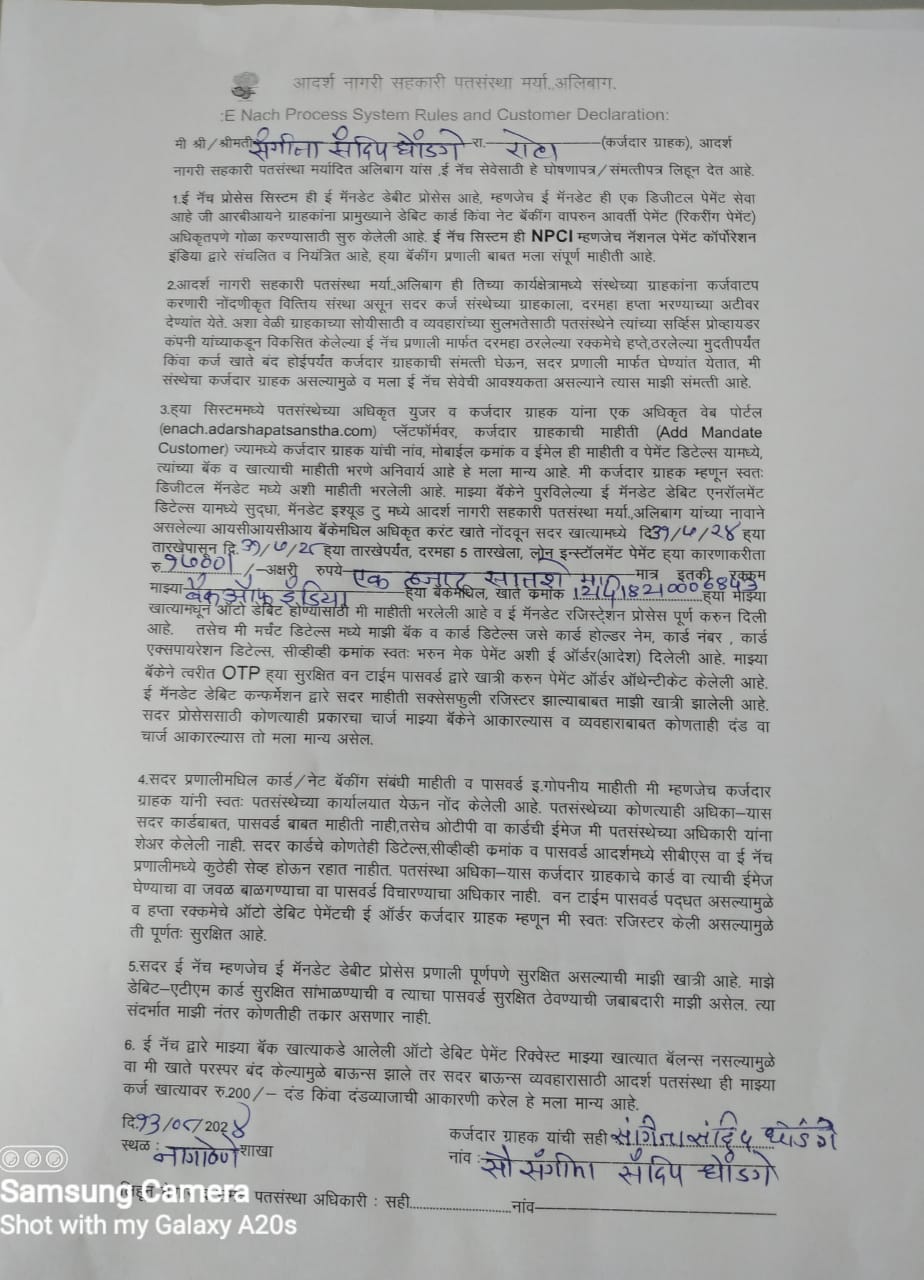 आदर्श नागरी सहकारी पतसंस्था मर्या..अलिबाग.
:E Nach Process System Rules and Customer Declaration:
मी श्री/श्रीमती संगीता संदिप घोंडगे रा. रोहा (कर्जदार ग्राहक), आदर्श
नागरी सहकारी पतसंस्था मर्यादित अलिबाग यांस ,ई नॅच सेवेसाठी हे घोषणापत्र/संमत्तीपत्र लिहून देत आहे.
1.ई नॅच प्रोसेस सिस्टिम ही ई मॅनडेट डेबीट प्रोसेस आहे, म्हणजेच ई मॅनडेट ही एक डिजिटल पेमेंट सेवा
आहे जी आरबीआयने ग्राहकांना प्रामुख्याने डेबिट कार्ड किंवा नेट बॅकींग वापरुन आवर्ती पेमेंट (रिकरींग पेमेंट)
अधिकृतपणे गोळा करण्यासाठी सुरु केलेली आहे. ई नॅच सिस्टिम ही NPCI म्हणजेच नॅशनल पेमेंट कॉर्पोरेशन
इंडिया द्वारे संचलित व नियंत्रित आहे, ह्या बॅकींग प्रणाली बाबत मला संपूर्ण माहीती आहे.
2.आदर्श नागरी सहकारी पतसंस्था मर्या.,अलिबाग ही तिच्या कार्यक्षेत्रामध्ये संस्थेच्या ग्राहकांना कर्जवाटप
करणारी नोंदणीकृत वित्तिय संस्था असून सदर कर्ज संस्थेच्या ग्राहकाला, दरमहा हप्ता भरण्याच्या अटीवर
देण्यांत येते. अशा वेळी ग्राहकाच्या सोयीसाठी व व्यवहारांच्या सुलभतेसाठी पतसंस्थेने त्यांच्या सर्व्हिस प्रोव्हायडर
कंपनी यांच्याकडून विकसित केलेल्या ई नॅच प्रणाली मार्फत दरमहा ठरलेल्या रक्कमेचे हप्ते,ठरलेल्या मुदतीपर्यंत
किंवा कर्ज खाते बंद होईपर्यंत कर्जदार ग्राहकाची संमत्ती घेऊन, सदर प्रणाली मार्फत घेण्यांत येतात, मी
संस्थेचा कर्जदार ग्राहक असल्यामुळे व मला ई नॅच सेवेची आवश्यकता असल्याने त्यास माझी संमत्ती आहे.
3.ह्या सिस्टिममध्ये पतसंस्थेच्या अधिकृत युजर व कर्जदार ग्राहक यांना एक अधिकृत वेब पोर्टल
(enach.adarshapatsanstha.com) प्लॅटफॉर्मवर, कर्जदार ग्राहकाची माहीती (Add Mandate
Customer) ज्यामध्ये कर्जदार ग्राहक यांची नांव, मोबाईल क्रमांक व ईमेल ही माहीती व पेमेंट डिटेल्स यामध्ये,
त्यांच्या बॅक व खात्याची माहीती भरणे अनिवार्य आहे हे मला मान्य आहे. मी कर्जदार ग्राहक म्हणून स्वतः
डिजीटल मॅनडेट मध्ये अशी माहीती भरलेली आहे. माझ्या बॅकेने पुरविलेल्या ई मॅनडेट डेबिट एनरॉलमेंट
डिटेल्स यामध्ये सुद्धा, मॅनडेट इश्यूड टु मध्ये आदर्श नागरी सहकारी पतसंस्था मर्या.,अलिबाग यांच्या नावाने
असलेल्या आयसीआयसीआय बॅकेमधिल अधिकृत करंट खाते नोंदवून सदर खात्यामध्ये दि ३१/७/२४ ह्या
तारखेपासून दि. ३१/५/२८ ह्या तारखेपर्यंत, दरमहा 5 तारखेला, लोन इन्स्टॉलमेंट पेमेंट ह्या कारणाकरीता
रु १७००/ /-अक्षरी रुपये एक हजार सातशे मात्र मात्र इतकी रक्कम
माझ्या बँक ऑफ इंडिया ह्या बॅकेमधिल, खाते क्रमांक 121418210006843 ह्या माझ्या
खात्यामधून ऑटो डेबिट होण्यासाठी मी माहीती भरलेली आहे व ई मॅनडेट रजिस्ट्रेशन प्रोसेस पूर्ण करुन दिली
आहे. तसेच मी मर्चंट डिटेल्स मध्ये माझी बॅक व कार्ड डिटेल्स जसे कार्ड होल्डर नेम, कार्ड नंबर , कार्ड
एक्सपायरेशन डिटेल्स, सीव्हीव्ही क्रमांक स्वतः भरुन मेक पेमेंट अशी ई ऑर्डर(आदेश) दिलेली आहे. माझ्या
बॅकेने त्वरीत OTP ह्या सुरक्षित वन टाईम पासवर्ड द्वारे खात्री करुन पेमेंट ऑर्डर ऑथेन्टीकेट केलेली आहे.
ई मॅनडेट डेबिट कन्फर्मेशन द्वारे सदर माहीती सक्सेसफुली रजिस्टर झाल्याबाबत माझी खात्री झालेली आहे.
सदर प्रोसेससाठी कोणत्याही प्रकारचा चार्ज माझ्या बॅकेने आकारल्यास व व्यवहाराबाबत कोणताही दंड वा
चार्ज आकारल्यास तो मला मान्य असेल.
4.सदर प्रणालीमधिल कार्ड/नेट बॅकींग संबंधी माहीती व पासवर्ड इ.गोपनीय माहीती मी म्हणजेच कर्जदार
ग्राहक यांनी स्वतः पतसंस्थेच्या कार्यालयात येऊन नोंद केलेली आहे. पतसंस्थेच्या कोणत्याही अधिका-यास
सदर कार्डबाबत, पासवर्ड बाबत माहीती नाही,तसेच ओटीपी वा कार्डची ईमेज मी पतसंस्थेच्या अधिकारी यांना
शेअर केलेली नाही. सदर कार्डचे कोणतेही डिटेल्स,सीव्हीव्ही क्रमांक व पासवर्ड आदर्शमध्ये सीबीएस वा ई नॅच
प्रणालीमध्ये कुठेही सेव्ह होऊन रहात नाहीत. पतसंस्था अधिका-यास कर्जदार ग्राहकाचे कार्ड वा त्याची ईमेज
घेण्याचा वा जवळ बाळगण्याचा वा पासवर्ड विचारण्याचा अधिकार नाही. वन टाईम पासवर्ड पद्धत असल्यामुळे
व हप्ता रक्कमेचे ऑटो डेबिट पेमेंटची ई ऑर्डर कर्जदार ग्राहक म्हणून मी स्वतः रजिस्टर केली असल्यामुळे
ती पूर्णतः सुरक्षित आहे.
5.सदर ई नॅच म्हणजेच ई मॅनडेट डेबीट प्रोसेस प्रणाली पूर्णपणे सुरक्षित असल्याची माझी खात्री आहे. माझे
डेबिट-एटीएम कार्ड सुरक्षित सांभाळण्याची व त्याचा पासवर्ड सुरक्षित ठेवण्याची जबाबदारी माझी असेल. त्या
संदर्भात माझी नंतर कोणतीही तक्रार असणार नाही.
6. ई नॅच द्वारे माझ्या बॅक खात्याकडे आलेली ऑटो डेबिट पेमेंट रिक्वेस्ट माझ्या खात्यात बॅलन्स नसल्यामुळे
वा मी खाते परस्पर बंद केल्यामुळे बाऊन्स झाले तर सदर बाऊन्स व्यवहारासाठी आदर्श पतसंस्था ही माझ्या
कर्ज खात्यावर रु.200/- दंड किंवा दंडव्याजाची आकारणी करेल हे मला मान्य आहे.
दि. १३/०८/2024
स्थळ : नागोठणे शाखा
कर्जदार ग्राहक यांची सही संगिता संदिप घोंडगे
नांव : सौ संगीता संदिप घोंडगे
पतसंस्था अधिकारी : सही..................नांव
Samsung Camera
Shot with my Galaxy A20s